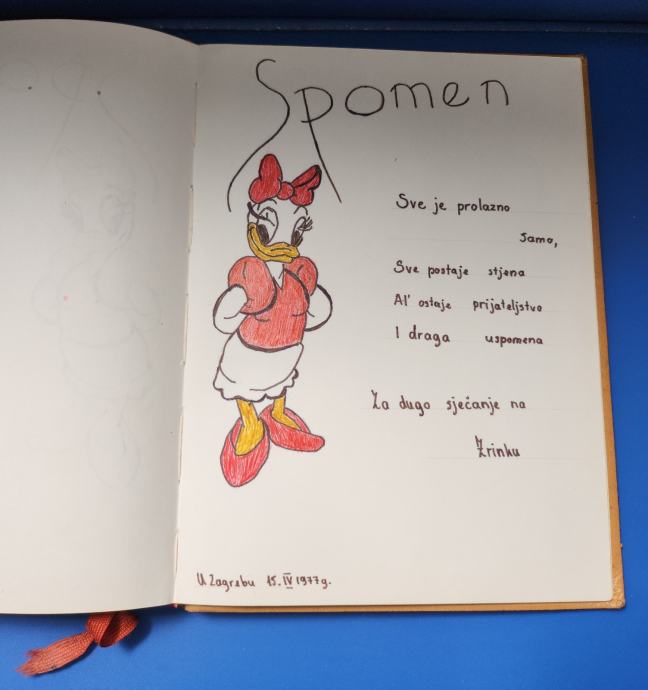 Spomen
Sve je prolazno
samo,
Sve postaje stjena
Al' ostaje prijateljstvo
I draga uspomena
Za dugo sjećanje na
Zrinku
U Zagrebu 15. IV 1977g.